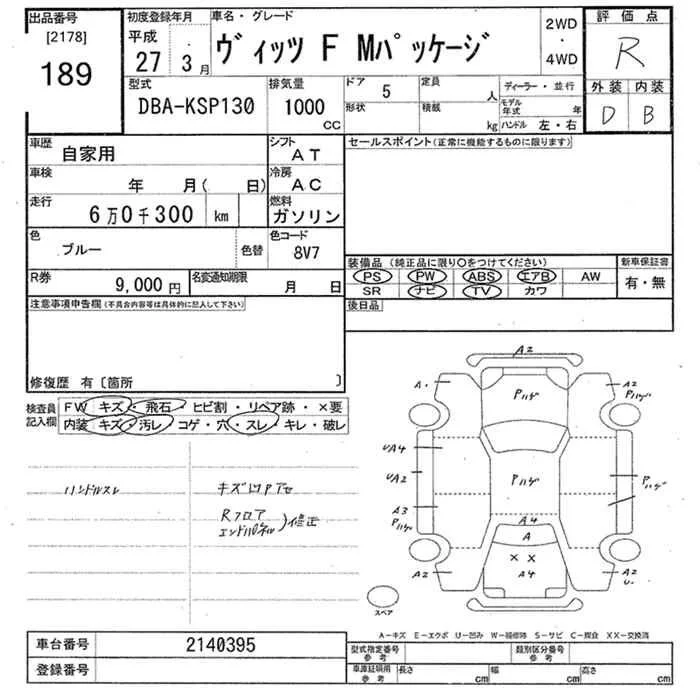 出品番号
[2178]
189
初度登録年月
平成
27年 3月
車名・グレード
ヴィッツ F Mパッケージ
2WD
・
4WD
評価点
R
外装 内装
D B
型式
DBA-KSP130
排気量
1000
CC
ドア 5
定員 人
形状
積載 kg
ディーラー・並行
モデル年式 年
ハンドル 左・右
車歴
自家用
シフト
AT
車検
年 月( 日)
冷房
AC
走行
6万0千300 km
燃料
ガソリン
色
ブルー
色替
色コード
8V7
R券
9,000円
名変通知期限
月 日
セールスポイント(正常に機能するものに限ります)
装備品(純正品に限り○をつけてください)
新車保証書
PS PW ABS エアB AW
有・無
SR ナビ TV カワ
後日品
注意事項申告欄(不具合内容等は具体的に記入して下さい)
修復歴 有〔箇所 〕
検査員
記入欄
FW キズ・飛石・ヒビ割・リペア跡・×要
内装 キズ・汚レ・コゲ・穴・スレ・キレ・破レ
ハンドルスレ
キズ凹Pアセ
Rフロア
エンドパネル)修正
A2
A・
Pハゲ
A2
Pハゲ
UA4
UA2
Pハゲ
Pハゲ
A3
Pハゲ
A4
A
× ×
A4
A2
A2
U・
スペア
A-キズ E-エクボ U-凹み W-補修跡 S-サビ C-腐食 XX-交換済
車台番号
2140395
登録番号
型式指定番号
参考
類別区分番号
参考
車庫証明用
参考
長さ cm
幅 cm
高さ cm